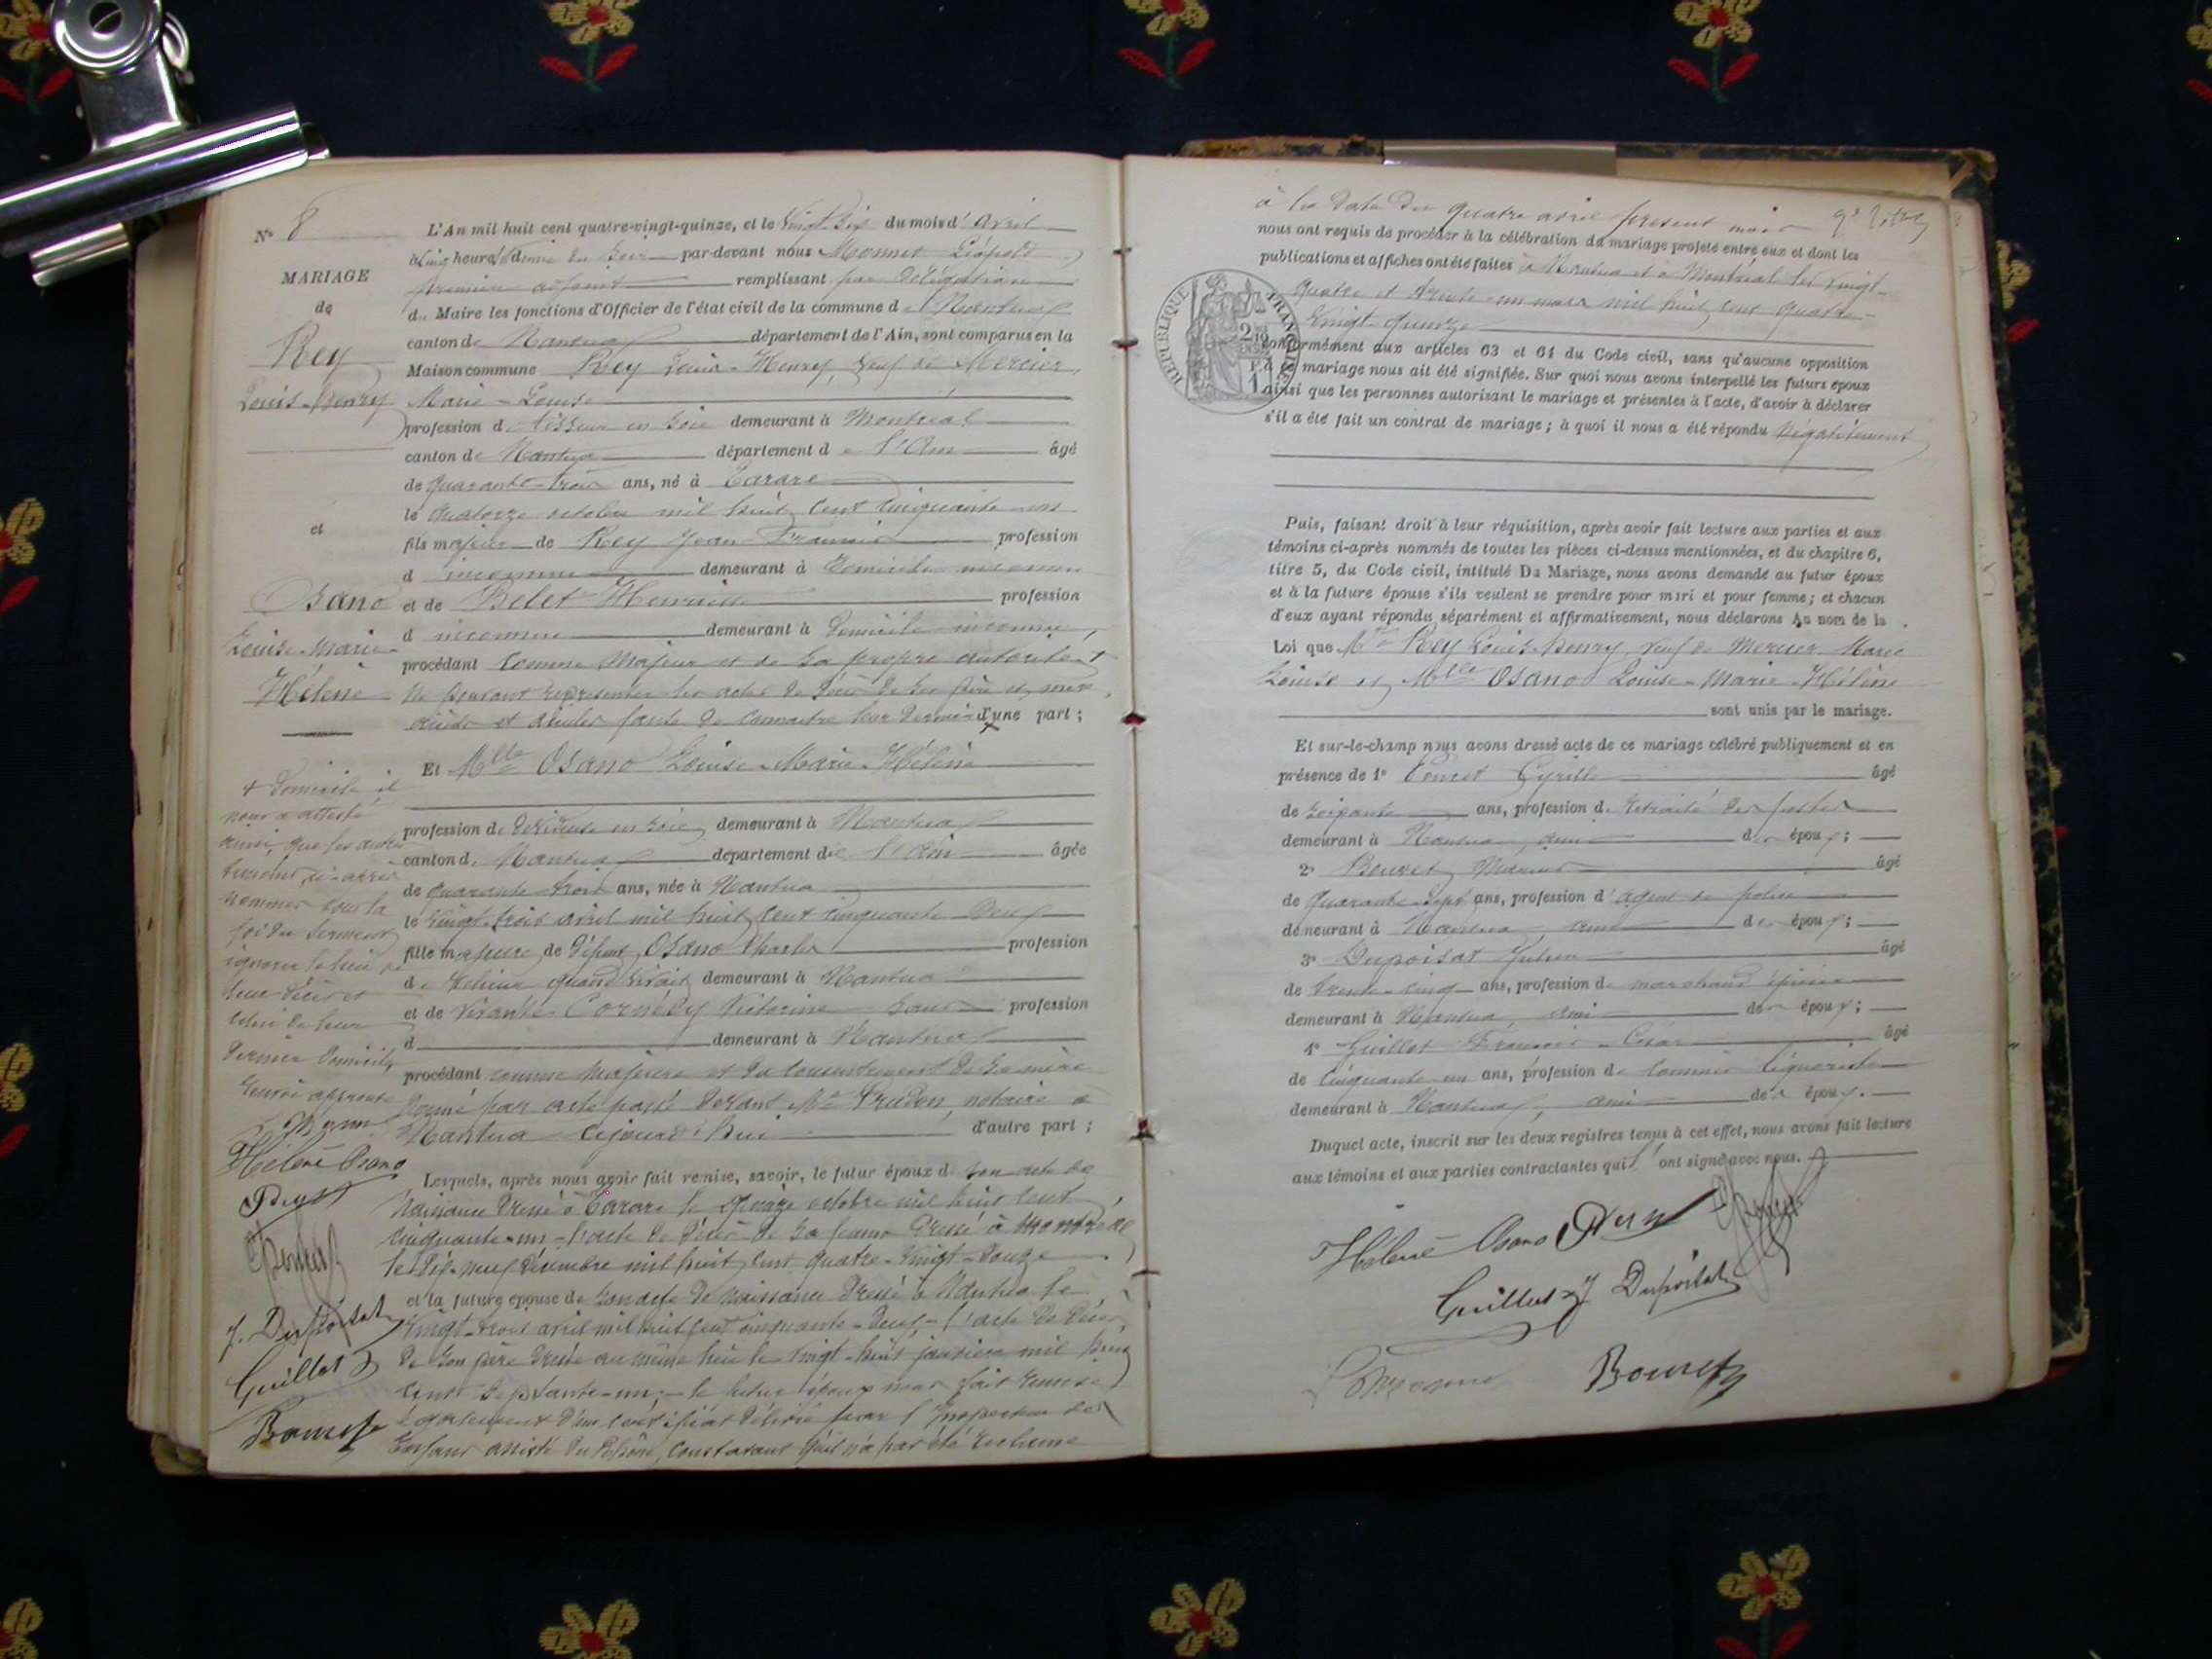 N° 8
MARIAGE
de
Rey
Louis-Henry
et
Osano
Louise-Marie-
Hélène
L'An mil huit cent quatre-vingt-quinze, et le Vingt Six du mois d'Avril
à Cinq heures & demie du Soir par-devant nous Monnet Léopold
premier adjoint remplissant par délégation
du Maire les fonctions d'Officier de l'état civil de la commune de Nantua
canton de Nantua département de l'Ain, sont comparus en la
Maison commune Rey Louis-Henry, veuf de Mercier
Marie-Louise
profession de tisseur en soie demeurant à Montréal
canton de Nantua département de l'Ain âgé
de quarante-trois ans, né à Tarare
le quatorze octobre mil huit cent cinquante-un
fils majeur de Rey Jean-François profession
d inconnue demeurant à domicile inconnu
et de Belet Henriette profession
d inconnue demeurant à domicile inconnu,
procédant comme Majeur et de sa propre autorité et
ne pouvant représenter les actes de décès de ses père et mère,
aïeuls et aïeules faute de connaître leur dernier d'une part ;
Et Mlle Osano Louise-Marie-Hélène
profession de dévideuse en soie demeurant à Nantua
canton de Nantua département de l'Ain âgée
de quarante-trois ans, née à Nantua
le vingt-trois avril mil huit cent cinquante-deux
fille majeure de défunt Osano Charles profession
de quand vivait demeurant à Nantua
et de vivante Cornéby Victorine sans profession
d demeurant à Nantua
procédant comme majeure et du consentement de sa mère
donné par acte passé devant Me Prudon, notaire à
Nantua cejourd'hui d'autre part ;
Lesquels, après nous avoir fait remise, savoir, le futur époux de son acte de
naissance dressé à Tarare le quinze octobre mil huit cent
cinquante-un - l'acte de décès de sa femme dressé à Montréal
le dix-neuf décembre mil huit cent quatre-vingt-douze
et la future épouse de son acte de naissance dressé à Nantua le
vingt-trois avril mil huit cent cinquante-deux, - l'acte de décès
de son père dressé au même lieu le vingt-huit janvier mil huit
cent septante-un ; - le futur époux nous fait remise
également d'un certificat délivré par l'Inspecteur des
Enfants assistés du Rhône, constatant qu'il n'a pas été réclamé
+ domicile il
nous a attesté
ainsi que les autres
témoins ci-après
nommés sous la
foi du serment
ignorer le lieu de
leur décès et
celui de leur
dernier domicile
renvoi approuvé
Hélène Osano
J. Dupoisat
Guillot
Bouvet
à la date du quatre avril présent mois
nous ont requis de procéder à la célébration du mariage projeté entre eux et dont les
publications et affiches ont été faites à Nantua et à Montréal les vingt-
quatre et trente-un mars mil huit cent quatre-
vingt-quinze
conformément aux articles 63 et 64 du Code civil, sans qu'aucune opposition
à ce mariage nous ait été signifiée. Sur quoi nous avons interpellé les futurs époux
ainsi que les personnes autorisant le mariage et présentes à l'acte, d'avoir à déclarer
s'il a été fait un contrat de mariage ; à quoi il nous a été répondu négativement
RÉPUBLIQUE FRANÇAISE
Puis, faisant droit à leur réquisition, après avoir fait lecture aux parties et aux
témoins ci-après nommés de toutes les pièces ci-dessus mentionnées, et du chapitre 6,
titre 5, du Code civil, intitulé Du Mariage, nous avons demandé au futur époux
et à la future épouse s'ils veulent se prendre pour mari et pour femme ; et chacun
d'eux ayant répondu séparément et affirmativement, nous déclarons Au nom de la
Loi que Mr Rey Louis-Henry veuf de Mercier Marie
Louise et Mlle Osano Louise-Marie-Hélène
sont unis par le mariage.
Et sur-le-champ nous avons dressé acte de ce mariage célébré publiquement et en
présence de 1° Poncet Cyrille âgé
de soixante ans, profession de retraité des postes
demeurant à Nantua, ami des époux ;
2° Bouvet Marius âgé
de quarante-sept ans, profession d'agent de police
demeurant à Nantua, ami des époux ;
3° Dupoisat Julien âgé
de trente-cinq ans, profession de marchand épicier
demeurant à Nantua, ami des époux ;
4° Guillot François-César âgé
de cinquante-un ans, profession de commis liquoriste
demeurant à Nantua, ami des époux.
Duquel acte, inscrit sur les deux registres tenus à cet effet, nous avons fait lecture
aux témoins et aux parties contractantes qui l'ont signé avec nous.
Hélène Osano Rey
Guillot J. Dupoisat
Bouvet